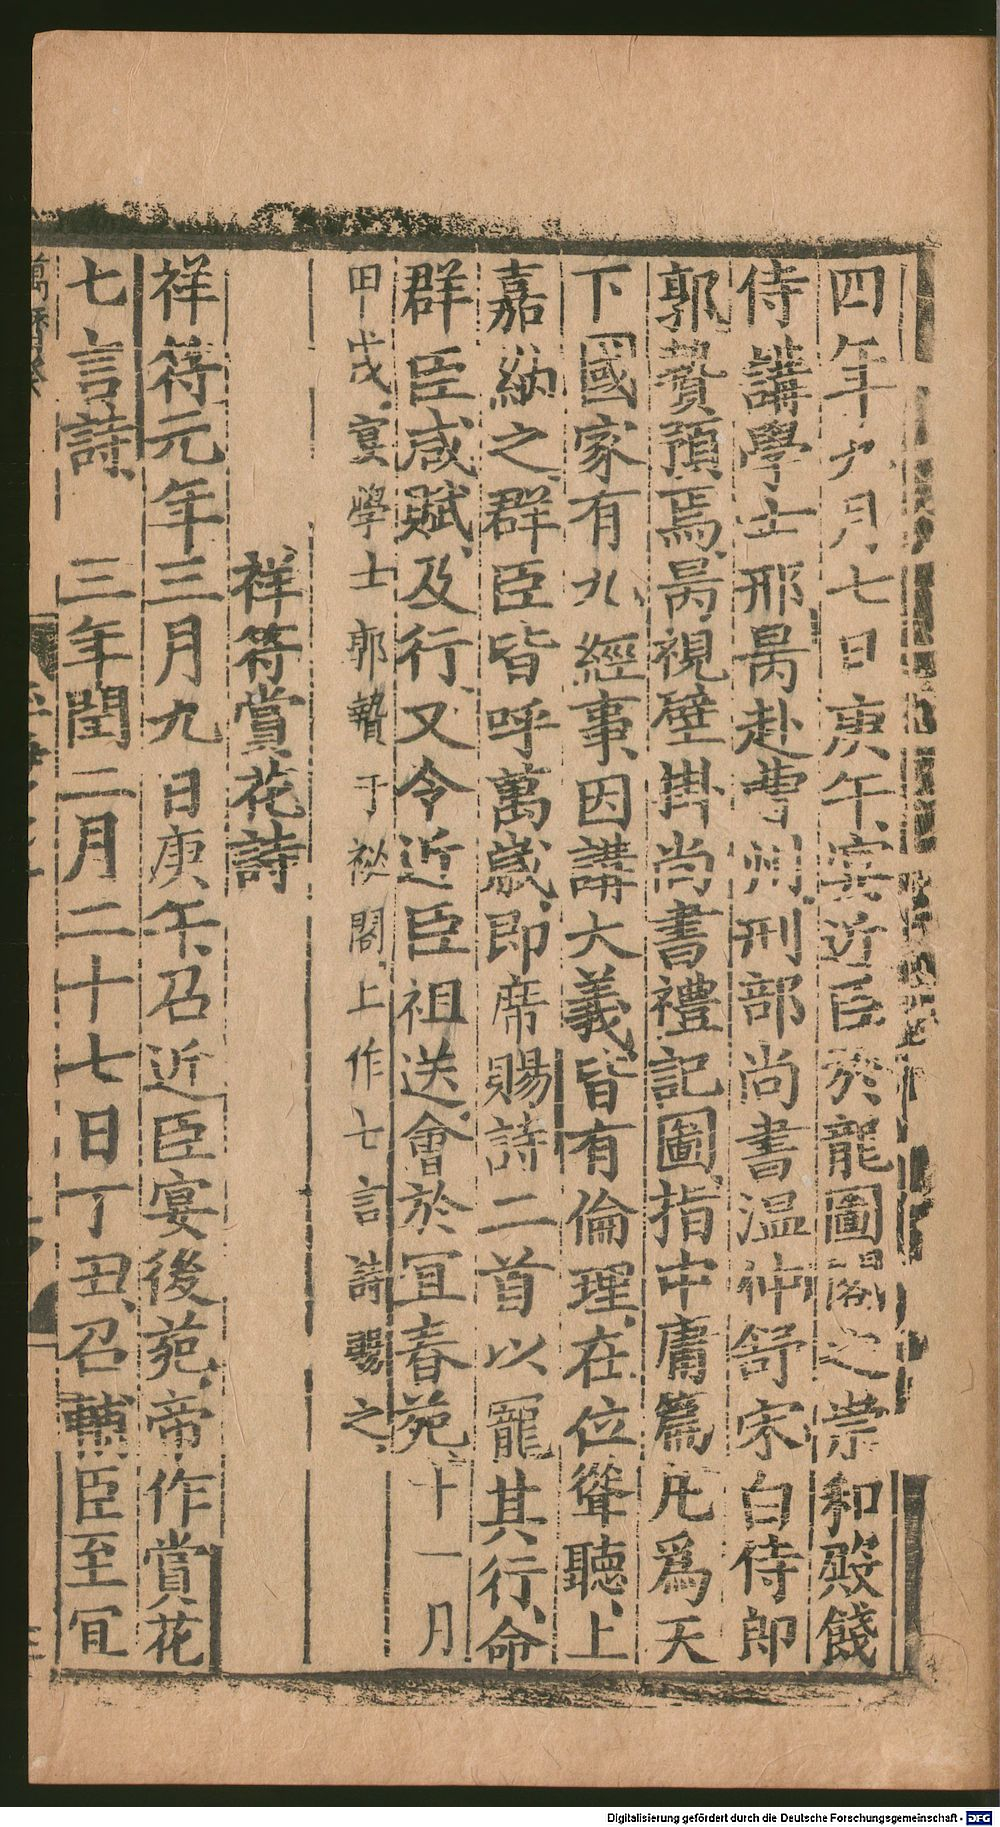 四年九月七日庚午宴近臣於龍圖閣之崇和殿餞
侍講學士邢昺赴曹州刑部尚書溫仲舒宋白侍郎
郭贄預焉昺視壁掛尚書禮記圖指中庸篇凡爲天
下國家有九經事因講大義皆有倫理在位聳聽上
嘉納之群臣皆呼萬歲即席賜詩二首以寵其行命
群臣咸賦及行又令近臣祖送會於宜春苑十一月
甲戌宴學士郭贄于祕閣上作七言詩賜之
祥符賞花詩
祥符元年三月九日庚午召近臣宴後苑帝作賞花
七言詩 三年閏二月二十七日丁丑召輔臣至宜
Digitalisierung gefördert durch die Deutsche Forschungsgemeinschaft - DFG